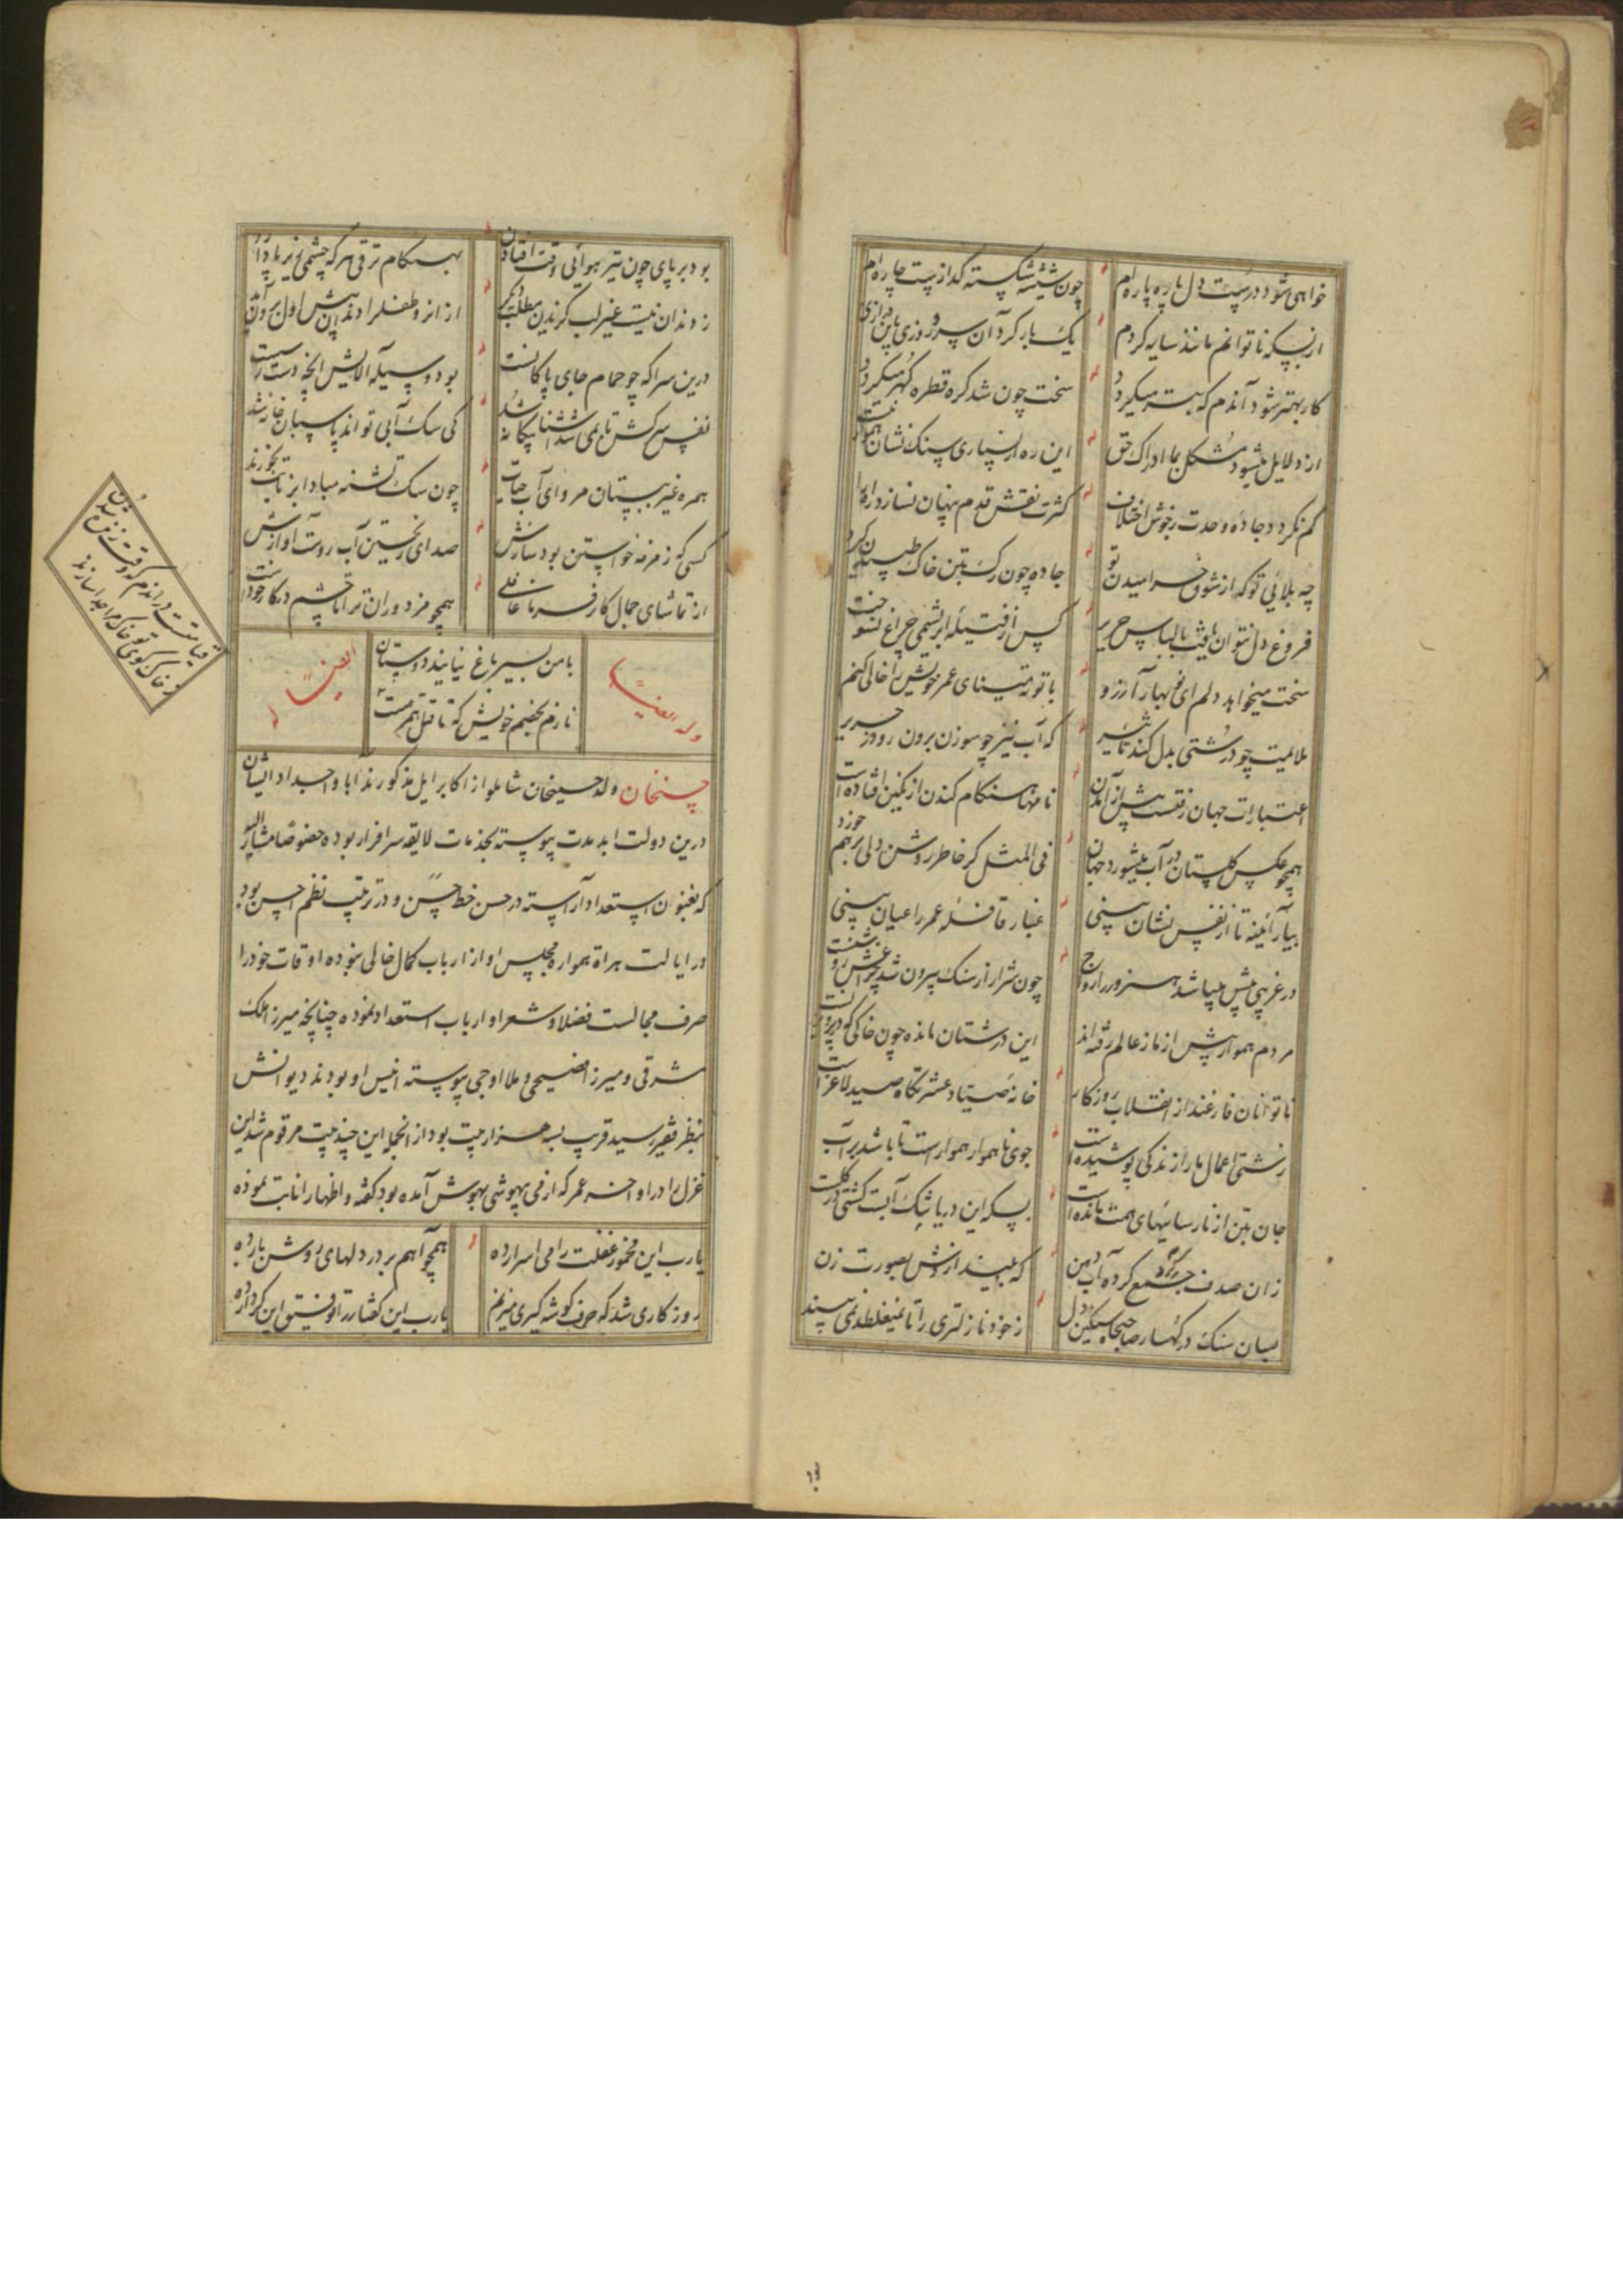 خواهی شود درست دل پاره پاره‌ام
چون شیشه شکسته گدازیست چاره‌ام
از بسکه ناتوانم مانند سایه کردم
یک بار کرد آن سرو روزی باین درازی
کار بهتر شود آندم که بتر میگردد
سخت چون شد گره قطره گهر میگردد
از دلایل میشود مشکل بما ادراک حق
این ره از بسیاری سنگ نشان هموار نیست
کم نگردد جاده وحدت زخوش اختلاف
کثرت نقش قدم پنهان نسازد راه را
چه بلائی تو که از شوق خرامیدن تو
جاده چون رگ بتن خاک طپیدن گیرد
فروغ دل نتوان یافت با لباس حریر
کس از فتیله ابریشمی چراغ نسوخت
سخت میخواهد دلم ای نوبهار آرزو
با تو ته مینای عمر خویش را خالی کنم
ملایمت چو درشتی بدل کند تاثیر
که آب نیز چو سوزن برون رود ز حریر
اعتبارات جهان رفتست پیش از آمدن
نامها هنگام کندن از نگین افتاده است
همچو عکس گلستان در آب میشورد جهان
فی المثل گر خاطر روشن دلی برهم خورد
بیار آئینه تا از نفس نشان بینی
غبار قافله عمر را عیان بینی
در غریبی بیش میباشد هنرور را رواج
چون شرار از سنگ بیرون شد چراغش روشنست
مردم هموار پیش از ما ز عالم رفته‌اند
این درشتان مانده چون خاکی که در پرویزنست
ناتوانان فارغند از انقلاب روزگار
خانه صیاد عشرتگاه صید لاغر است
زشتی اعمال ما را زندگی پوشیده است
جوی ناهموار هموار است تا باشد پر آب
جان بتن از نارسائیهای همت مانده است
بسکه این دریا تنک آبست کشتی در گلست
زان صدف جمع کرده آب دهن
که ببیند ازو بصورت زن
میان سنگ در کهسار صاحبجاه سنگین دل
ز خود نازلتری را تا نمیغلطد نمی بیند
بود بر پای چون تیر هوائی وقت افتادن
بهنگام ترقی هر که چشمی زیر پا دارد
ز دندان نیست غیر لب گزیدن مطلب دیگر
از انرو طفل را دندان پیش اول برون آید
درین سرا که چو حمام جای پاکانست
بود وسیله آلایش انچه دست رسیست
نفس سرکش تا نمی شد آشنا بیگانه شد
کی سگ آبی تواند پاسبان خانه شد
همره غیر ببستان مرو ای آب حیات
چون سگ تشنه مبادا بزبانت بخورند
کسی که زمزمه خواستن بود سازش
صدای ریختن آب روست آوازش
از تماشای جمال کارفرما غافلی
همچو مزدوران ترا تا چشم در کار خودست
وله ایضا
با من بسیر باغ نیایند دوستان
نازم بخصم خویش که تا قتل همرهست
ایضا له
حسنخان ولد حسینخان شاملو از اکابر ایل مذکورند ابا و اجداد ایشان
درین دولت ابد مدت پیوسته بخدمات لایقه سرافراز بوده خصوصا مشار الیه
که بفنون استعداد آراسته در حسن خط حسن و در ترتیب نظم احسن بود
در ایالت هراة همواره مجلس او از ارباب کمال خالی نبوده اوقات خود را
صرف مجالست فضلا و شعرا و ارباب استعداد نموده چنانچه میرزا ملک
مشرقی و میرزا فصیحی و ملا اوجی پیوسته انیس او بودند دیوانش
بنظر فقیر رسید قریب بسه هزار بیت بود از انجمله این چند بیت مرقوم شد این
غزل را در اواخر عمر که از می بیهوشی بهوش آمده بود گفته و اظهار انابت نموده
یارب این مخمور غفلت را می اسرار ده
همچو آهم بر در دلهای روشن بار ده
روزگاری شد که حرف گوشه گیری میزنم
یارب این گفتار را توفیق این کردار ده
قیامتست در اندم که وقت زنده شدن
ز خاک کوی تو خاک مرا جدا سازند